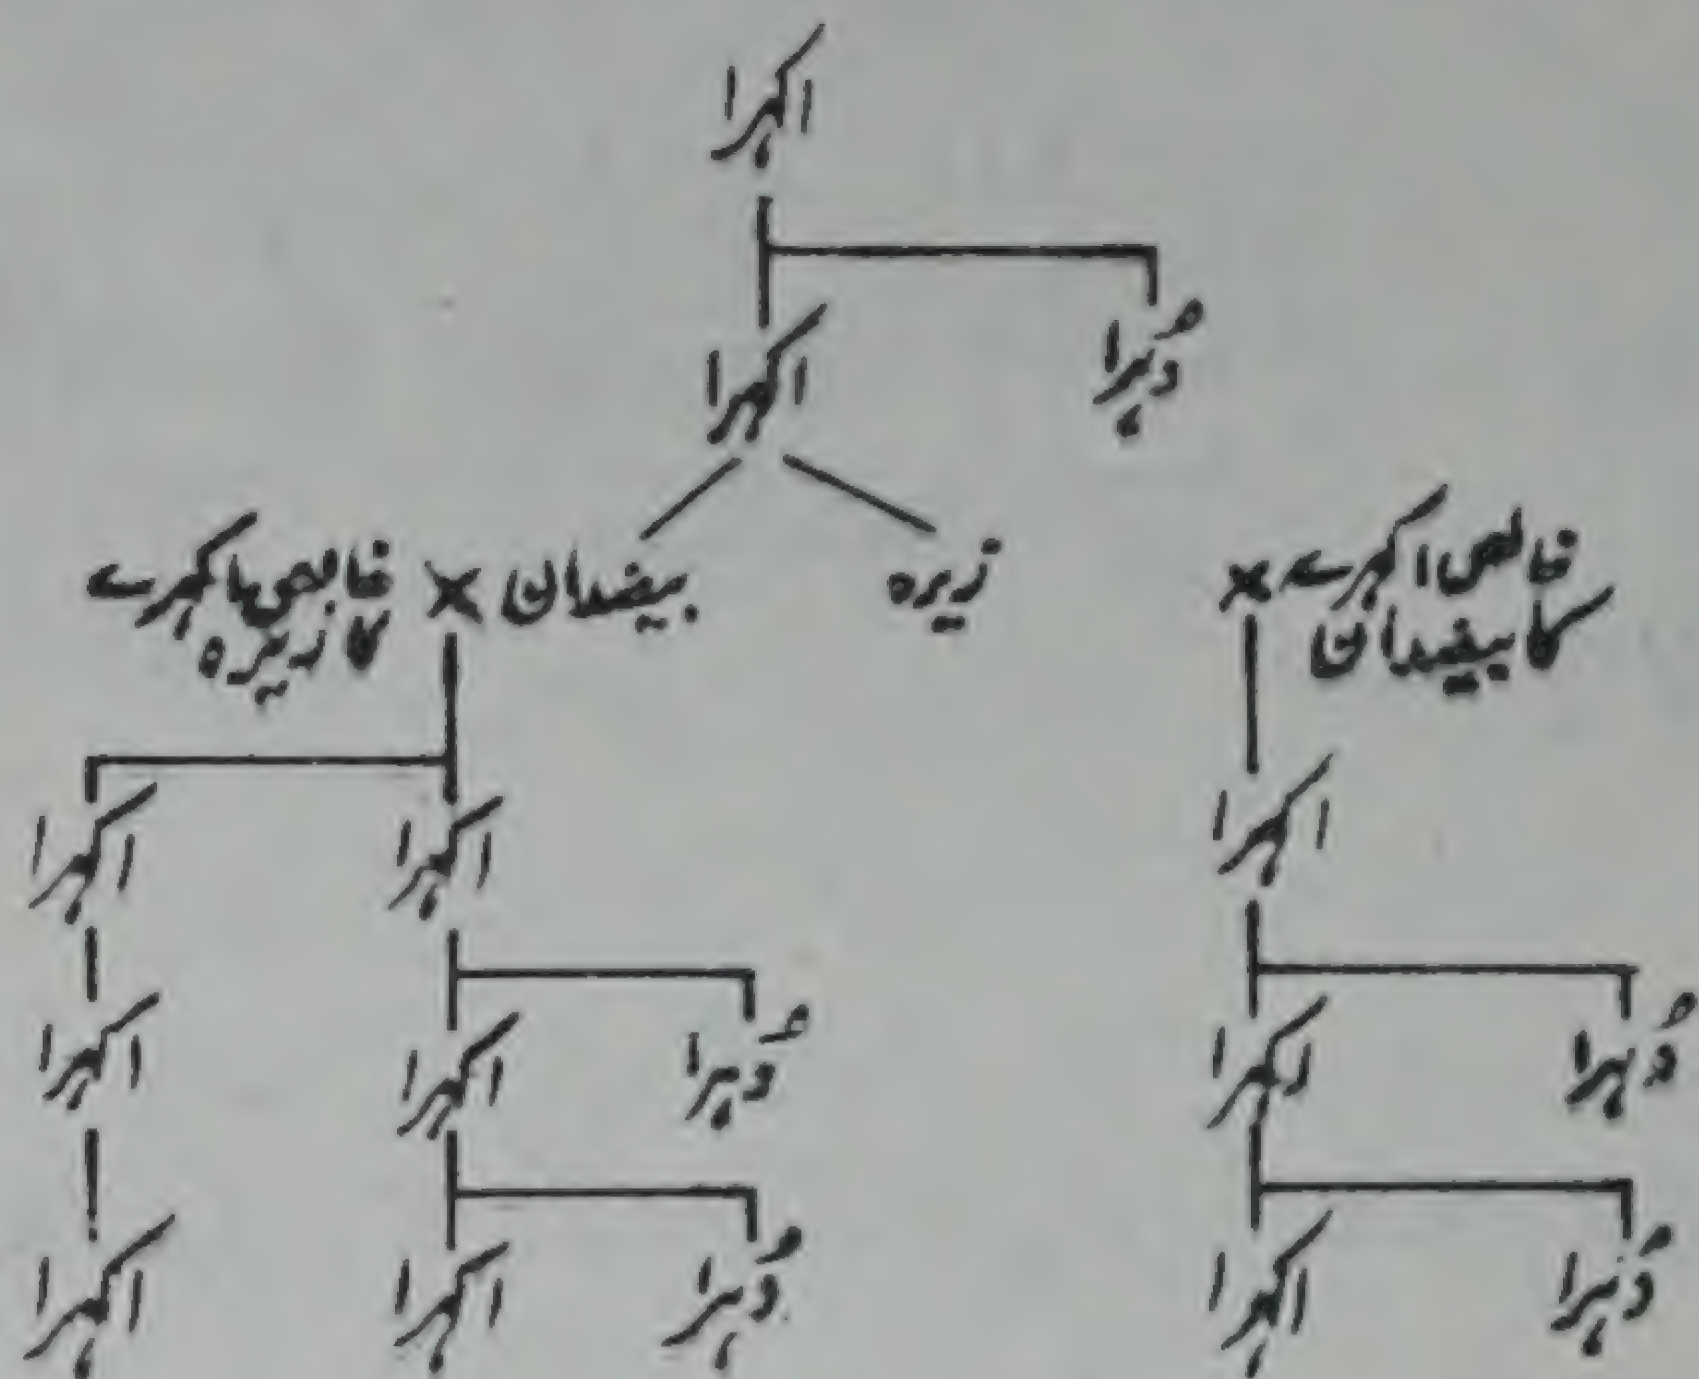 اکہرا
اکہرا دُہرا
خالص اکہرے × بیضدان زیرہ × خالص اکہرے
کا زیرہ کا بیضدان
اکہرا اکہرا اکہرا
اکہرا اکہرا دُہرا اکہرا دُہرا
اکہرا اکہرا دُہرا اکہرا دُہرا